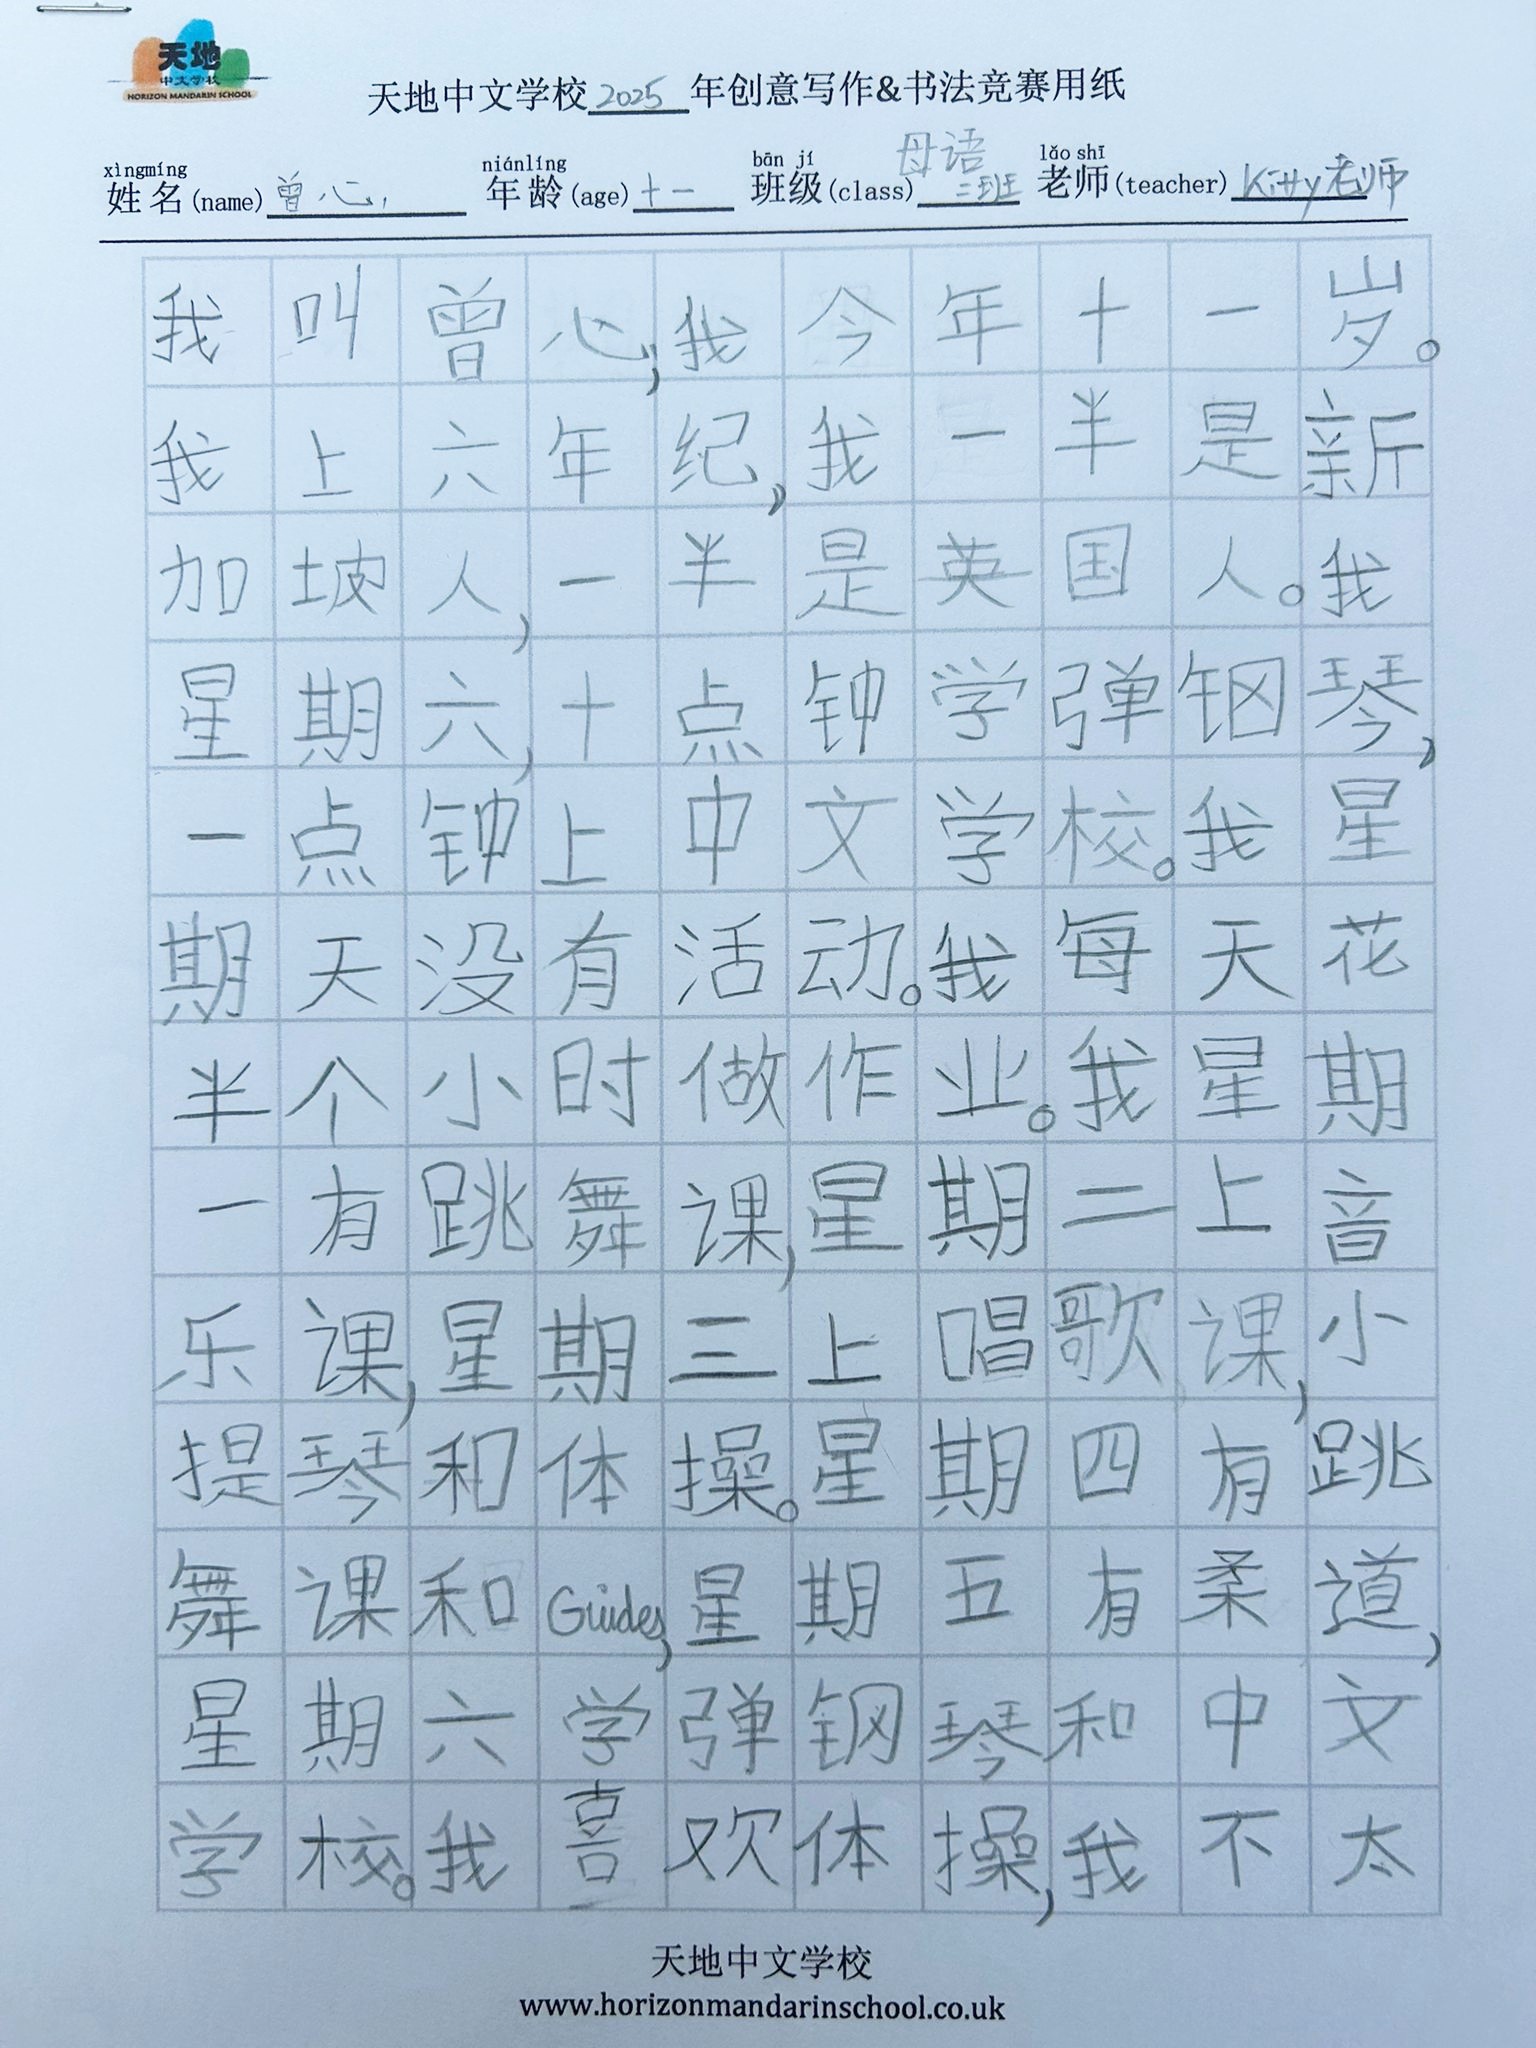 天地
中文学校
HORIZON MANDARIN SCHOOL
天地中文学校2025年创意写作&书法竞赛用纸
xìngmíng niánlíng bān jí lǎo shī
姓名(name)曾心 年龄(age)十一 班级(class)母语三班 老师(teacher)Kitty老师
我叫曾心,我今年十一岁。
我上六年纪,我一半是新
加坡人,一半是英国人。我
星期六,十点钟学弹钢琴,
一点钟上中文学校。我星
期天没有活动。我每天花
半个小时做作业。我星期
一有跳舞课,星期二上音
乐课,星期三上唱歌课,小
提琴和体操。星期四有跳
舞课和Guides,星期五有柔道,
星期六学弹钢琴和中文
学校。我喜欢体操,我不太
天地中文学校
www.horizonmandarinschool.co.uk